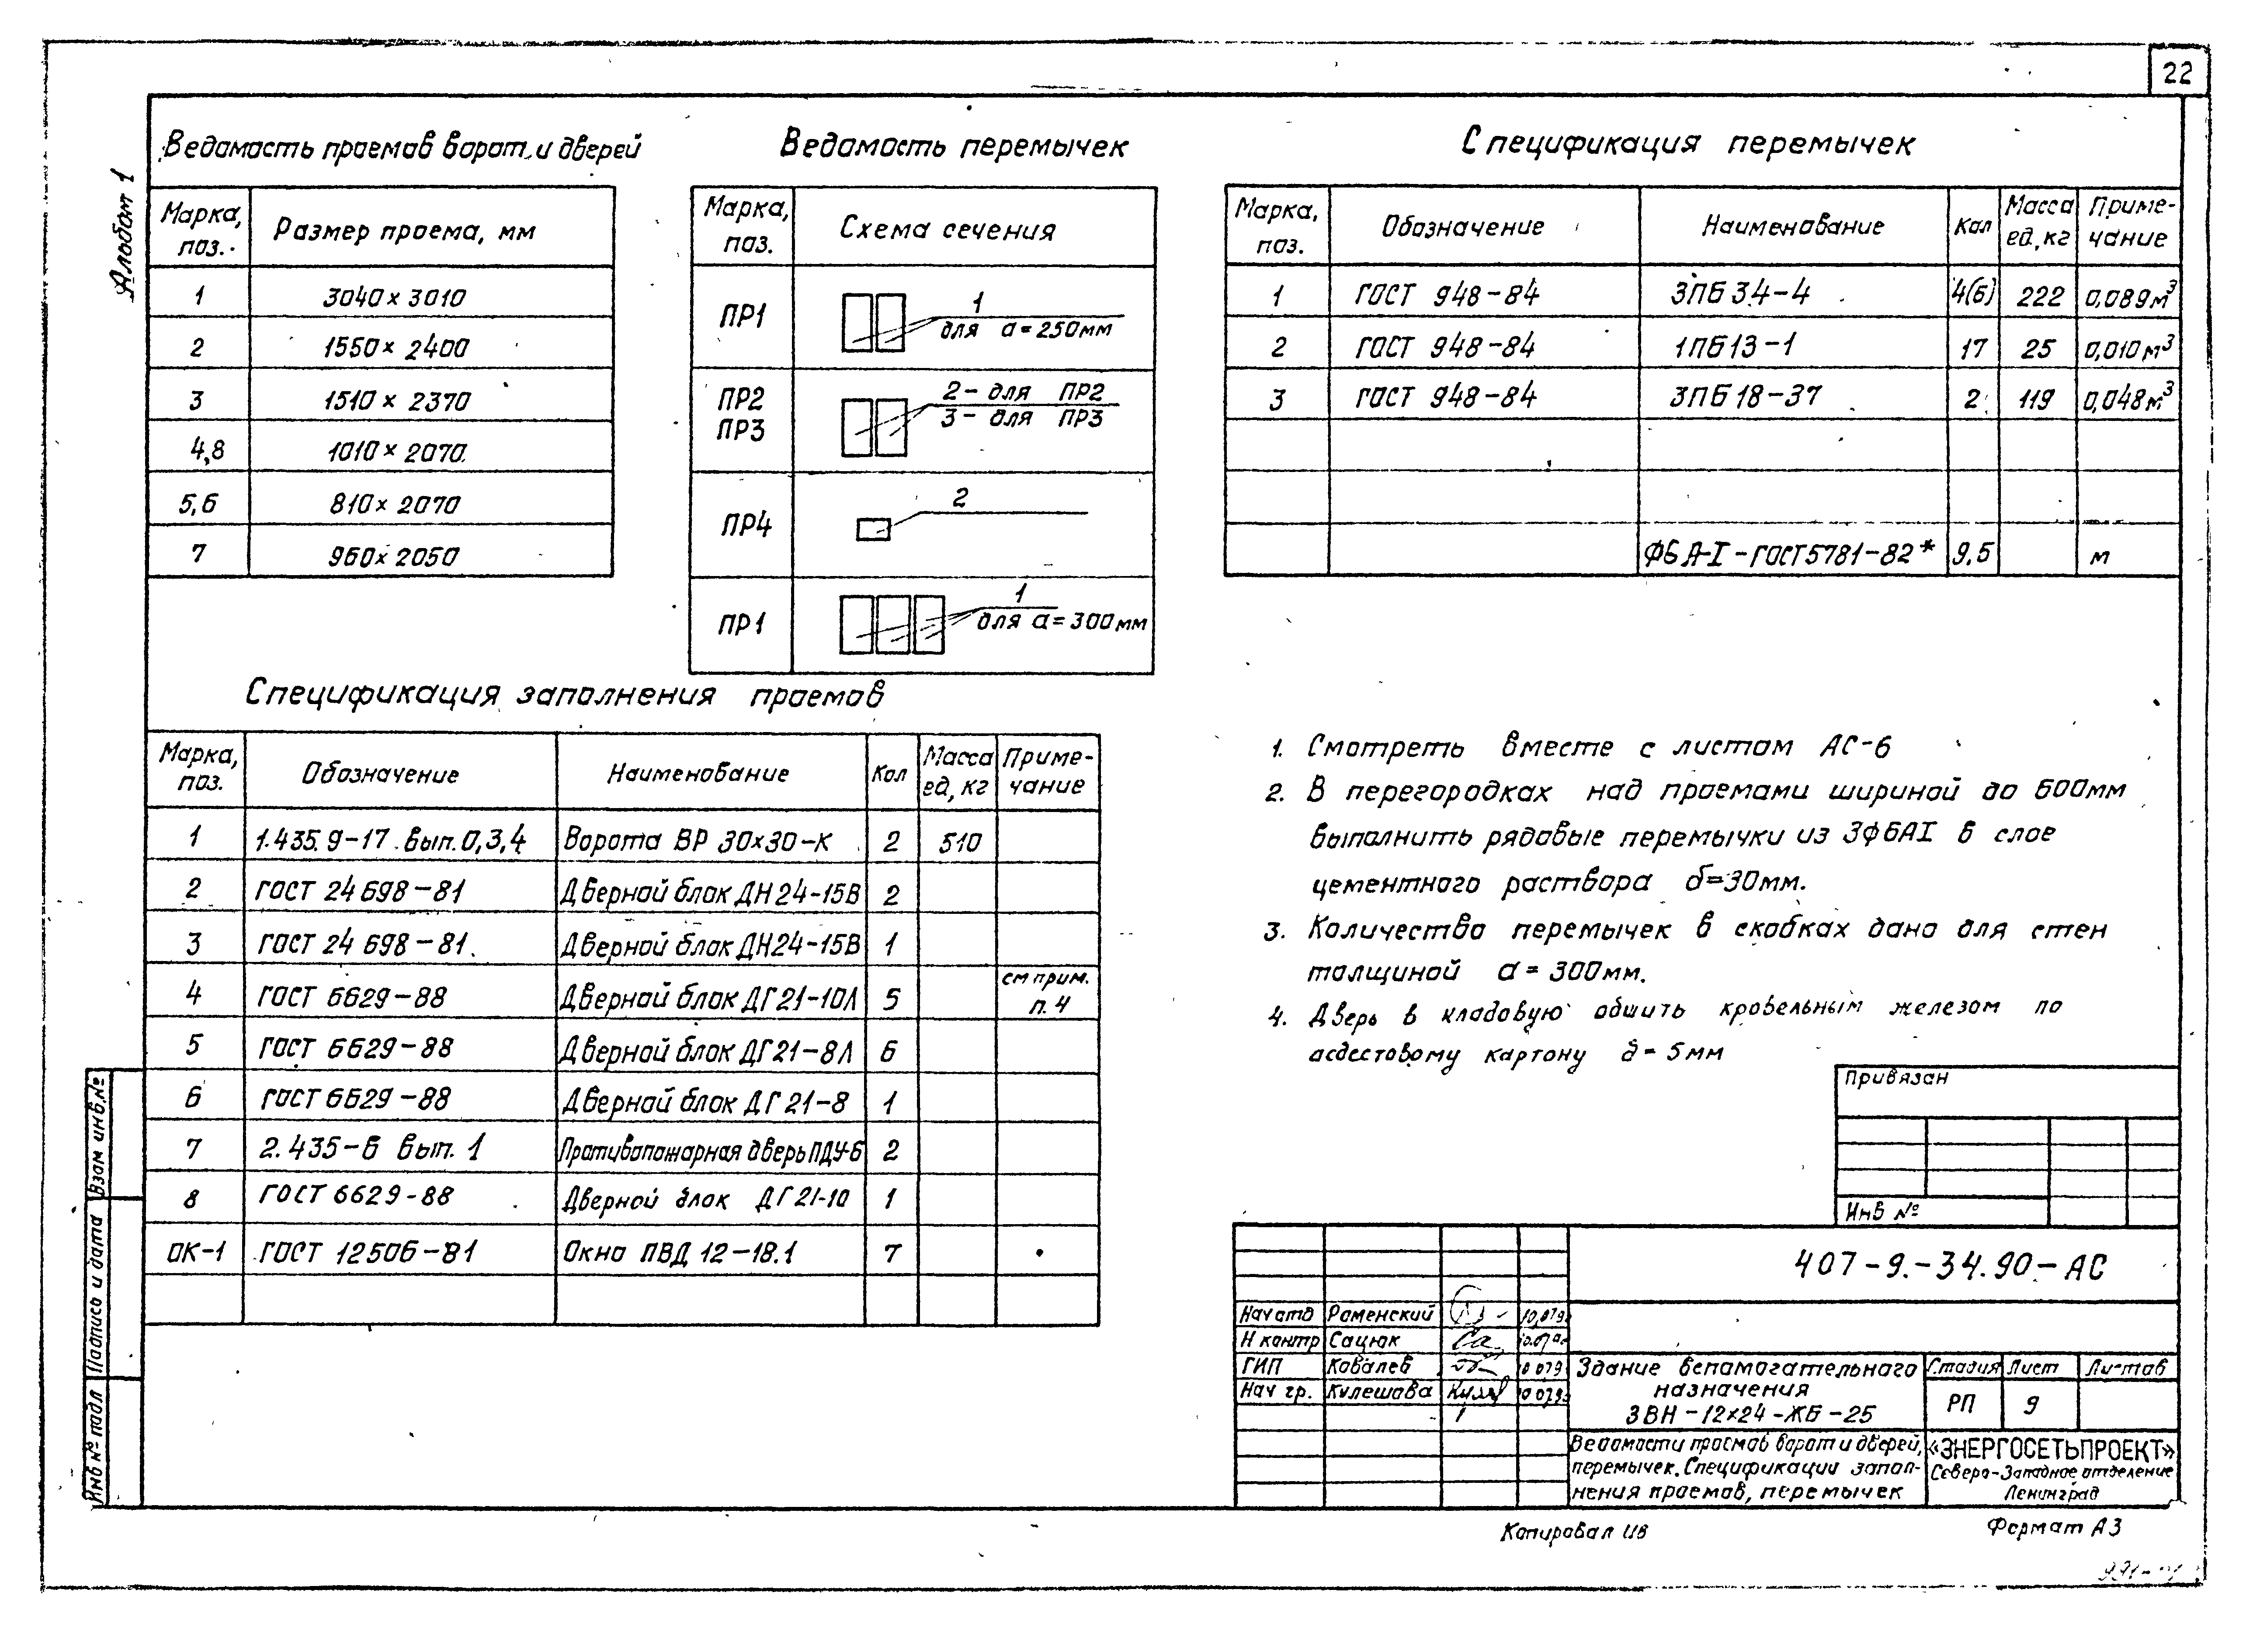 22
Альбом 1
Ведомость проемов ворот и дверей
Марка, поз. Размер проема, мм
1 3040×3010
2 1550×2400
3 1510×2370
4,8 1010×2070
5,6 810×2070
7 960×2050
Ведомость перемычек
Марка, поз. Схема сечения
ПР1 1
для a=250мм
ПР2 2- для ПР2
ПР3 3- для ПР3
ПР4 2
ПР1 1
для a=300мм
Спецификация перемычек
Марка, поз. Обозначение Наименование Кол Масса ед,кг Приме-чание
1 ГОСТ 948-84 3ПБ34-4 4(6) 222 0.089м³
2 ГОСТ 948-84 1ПБ13-1 17 25 0,010м³
3 ГОСТ 948-84 3ПБ18-37 2 119 0,048м³
Ф6 А-I-ГОСТ5781-82* 9,5 м
Спецификация заполнения проемов
Марка, поз. Обозначение Наименование Кол Масса ед, кг Приме-чание
1 1.435.9-17 вып.0,3,4 Ворота ВР 30×30-К 2 510
2 ГОСТ 24698-81 Дверной блок ДН24-15В 2
3 ГОСТ 24698-81. Дверной блок ДН24-15В 1
4 ГОСТ 6629-88 Дверной блок ДГ21-10Л 5 см прим. п.4
5 ГОСТ 6629-88 Дверной блок ДГ21-8Л 6
6 ГОСТ 6629-88 Дверной блок ДГ21-8 1
7 2.435-6 вып. 1 Противопожарная дверь ПДУ-6 2
8 ГОСТ 6629-88 Дверной блок ДГ21-10 1
ОК-1 ГОСТ 12506-81 Окно ПВД 12-18.1 7
1. Смотреть вместе с листом АС-6
2. В перегородках над проемами шириной до 600мм
выполнить рядовые перемычки из 3ф6АI в слое
цементного раствора δ=30мм.
3. Количество перемычек в скобках дано для стен
толщиной a=300мм.
4. Дверь в кладовую обшить кровельным железом по
асбестовому картону δ=5мм
Привязан
Инв №
407-9.-34.90-АС
Нач отд Роменский
Н контр Сацюк
ГИП Ковалев
Нач гр. Кулешова
Здание вспомогательного
назначения
ЗВН-12×24-ЖБ-25
Стадия Лист Листов
РП 9
Ведомости проемов ворот и дверей,
перемычек. Спецификации запол-
нения проемов, перемычек
«ЭНЕРГОСЕТЬПРОЕКТ»
Северо-Западное отделение
Ленинград
Взам инв.№
Подпись и дата
Инв № подл
Копировал
Формат А3